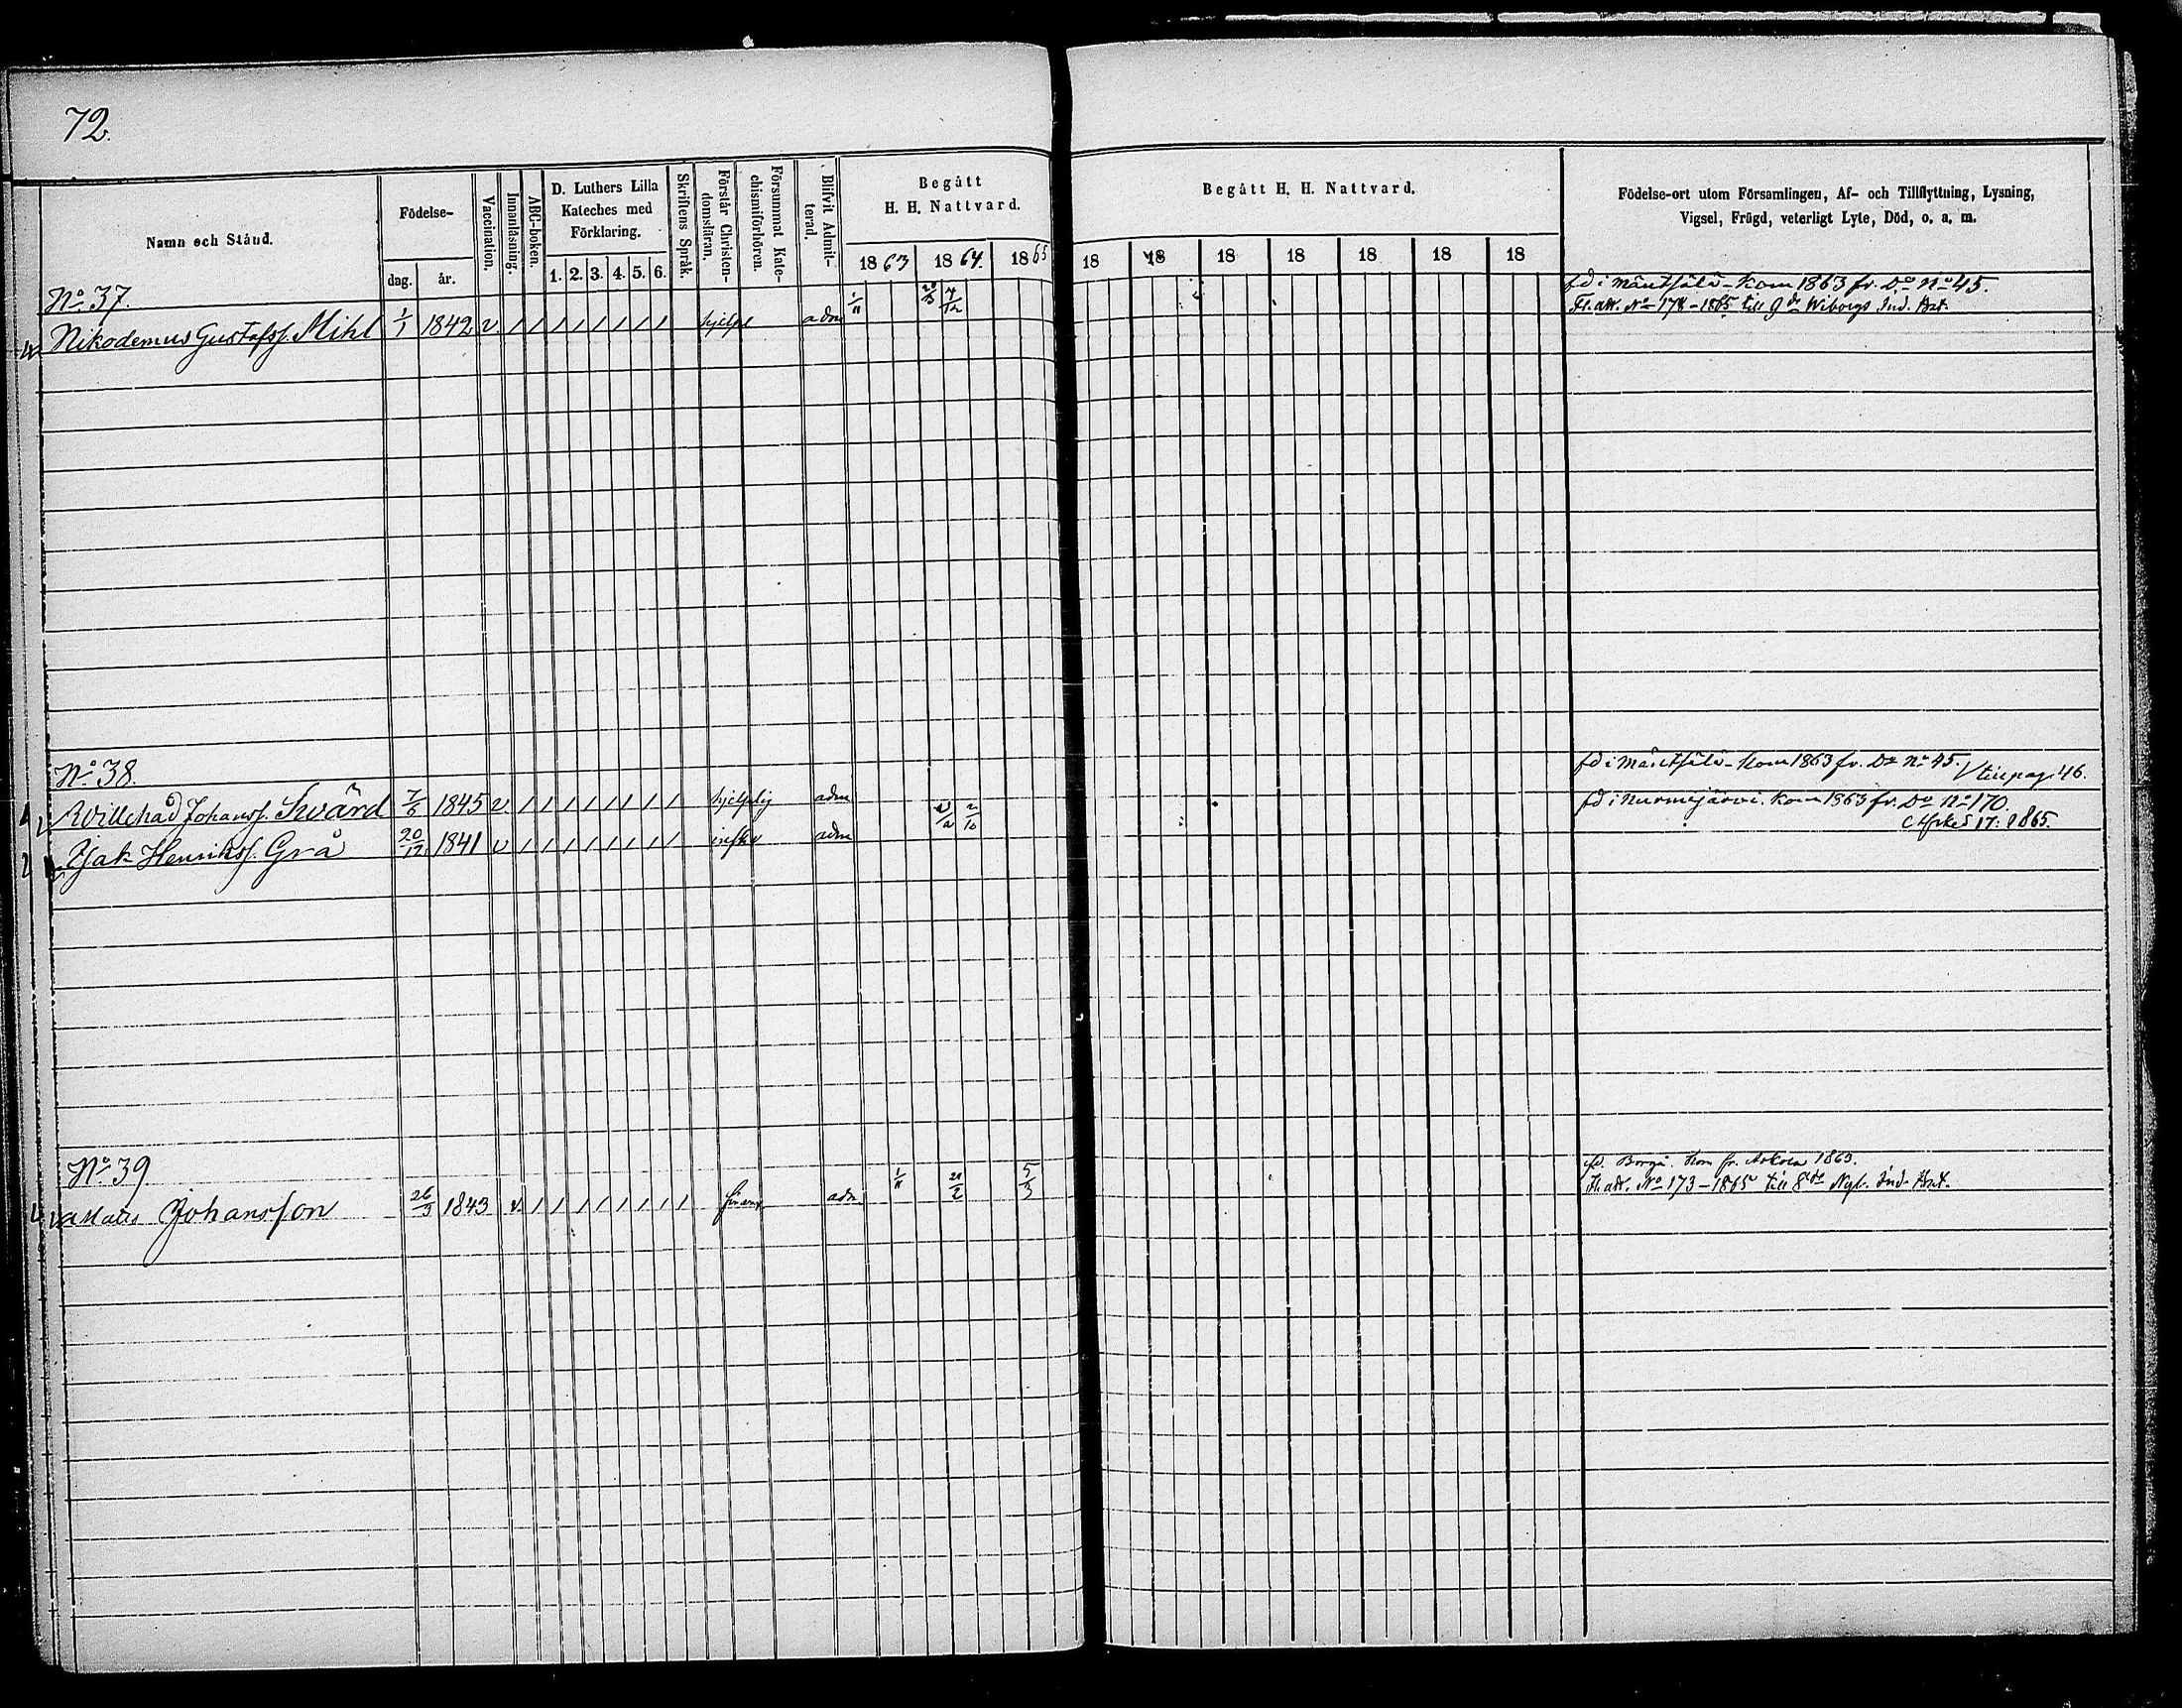 72.
Namn och Stånd.
Födelse-
dag. år.
Vaccination.
Innanläsning.
ABC-boken.
D. Luthers Lilla
Kateches med
Förklaring.
1. 2. 3. 4. 5. 6.
Skriftens Språk.
Förstår Christen-
domsläran.
Försummat Kate-
chismiförhören.
Blifvit Admit-
terad.
Begått
H. H. Nattvard.
1863 1864. 1865
Begått H. H. Nattvard.
18 18 18 18 18 18 18
Födelse-ort utom Församlingen, Af- och Tillflyttning, Lysning,
Vigsel, Frägd, veterligt Lyte, Död, o. a. m.
No 37.
Nikodemus Gustafss. Mihl 1/1 1842 v. / / / / / / / / hjelpl adm 1/11 7/12
fd i Mäntsälä - kom 1863 fr. Do No 45.
Fl. att. No 178 - 1865 till 9de Wiborgs Ind. Bat.
No 38.
Willehad Johanss. Svärd 7/8 1845 v. / / / / / / / / hjelplig adm
fd i Mäntsälä - kom 1863 fr. Do No 45. / till pag. 46.
Isak Henrikss. Grå 20/12 1841 v / / / / / / / / adm 2/10
fd i Nurmijärvi. kom 1863 fr. Do No 170.
Afsked 17: 1865.
No 39
Matts Johansson 26/3 1843 v. / / / / / / / / adm 1/11 21/2 5/3
fd. Borgå. kom fr. Askola 1863.
Fl. att. No 173 - 1865 till 8de Nyl. Ind. Bat.